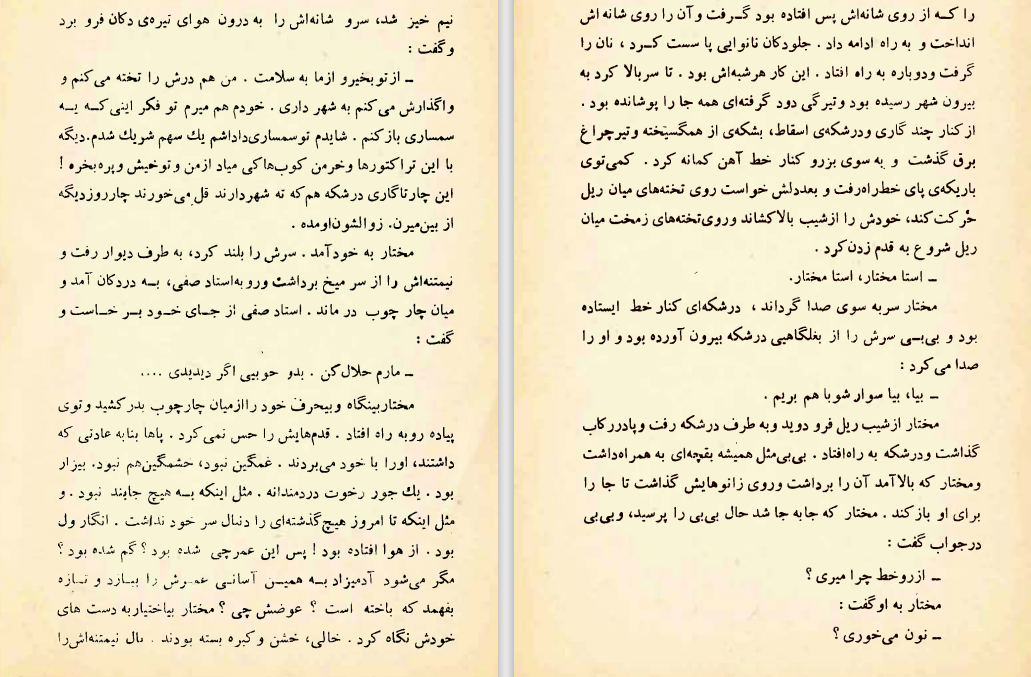 نیم خیز شد، سرو شانه‌اش را به درون هوای تیره‌ی دکان فرو برد
وگفت :
ــ ازتو بخیرو ازما به سلامت . من هم درش را تخته می‌کنم و
واگذارش می‌کنم به شهر داری . خودم هم میرم تو فکر اینی‌کــه یــه
سمساری بازکنم . شایدم توسمساری‌داداشم یك سهم شریك شدم.دیگه
با این تراکتورها وخرمن کوب‌هاکی میاد ازمن وتوخیش وپره‌بخره !
این چارتاگاری درشکه هم‌که ته شهردارند قل‌می‌خورند چارروزدیگه
از بین‌میرن. زوالشون‌اومده .
مختار به خودآمد . سرش را بلند کرد، به طرف دیوار رفت و
نیمتنه‌اش را از سر میخ برداشت وروبه‌استاد صفی، بــه دردکان آمد و
میان چار چوب در ماند . استاد صفی از جـای خــود بــر خــاست و
گفت :
ــ مارم حلال‌کن . بدو خوبیی اگر دیدیدی ....
مختاربینگاه وبیحرف خود راازمیان چارچوب بدرکشید وتوی
پیاده روبه راه افتاد . قدم‌هایش را حس نمی‌کرد . پاها بنابه عادتی که
داشتند، اورا با خود می‌بردند . غمگین نبود، خشمگین‌هم نبود. بیزار
بود . یك جور رخوت دردمندانه . مثل اینکه بــه هیچ جابند نبود . و
مثل اینکه تا امروز هیچ‌گذشته‌ای را دنبال سر خود نداشت . انگار ول
بود . از هوا افتاده بود ! پس این عمرچی شده بود ؟ گم شده بود ؟
مگر می‌شود آدمیزاد بــه همیــن آسانـی عمــرش را ببـازد و تــازه
بفهمد که باخته است ؟ عوضش چی ؟ مختار بیاختیاربه دست های
خودش نگاه کرد . خالی، خشن و کبره بسته بودند . بال نیمتنه‌اش‌را
را کــه از روی شانه‌اش پس افتاده بود گــرفت وآن را روی شانه اش
انداخت و به راه ادامه داد . جلودکان نانوایی پا سست کــرد ، نان را
گرفت ودوباره به راه افتاد . این کار هرشبه‌اش بود . تا سربالا کرد به
بیرون شهر رسیده بود وتیرگی دود گرفته‌ای همه جا را پوشانده بود .
ازکنار چند گاری ودرشکه‌ی اسقاط، بشکه‌ی از همگسیخته وتیرچراغ
برق گذشت و به سوی بزرو کنار خط آهن کمانه کرد . کمی‌توی
باریکه‌ی پای خط‌راه‌رفت و بعددلش خواست روی تخته‌های میان ریل
حرکت‌کند، خودش را ازشیب بالاکشاند وروی‌تخته‌های زمخت میان
ریل شروع به قدم زدن‌کرد .
ــ استا مختار، استا مختار.
مختار سربه سوی صدا گرداند ، درشکه‌ای کنار خط ایستاده
بود و بی‌بــی سرش را از بغلگاهیی درشکه بیرون آورده بود و او را
صدا می‌کرد :
ــ بیا، بیا سوار شوبا هم بریم .
مختار ازشیب ریل فرو دوید وبه طرف درشکه رفت وپادررکاب
گذاشت ودرشکه به راه‌افتاد . بی‌بی‌مثل همیشه بقچه‌ای به همراه‌داشت
ومختار که بالاآمد آن را برداشت وروی زانوهایش گذاشت تا جا را
برای او بازکند . مختار که جابه جا شد حال بی‌بی را پرسید، وبی‌بی
درجواب گفت :
ــ ازروخط چرا میری ؟
مختار به اوگفت :
ــ نون می‌خوری ؟